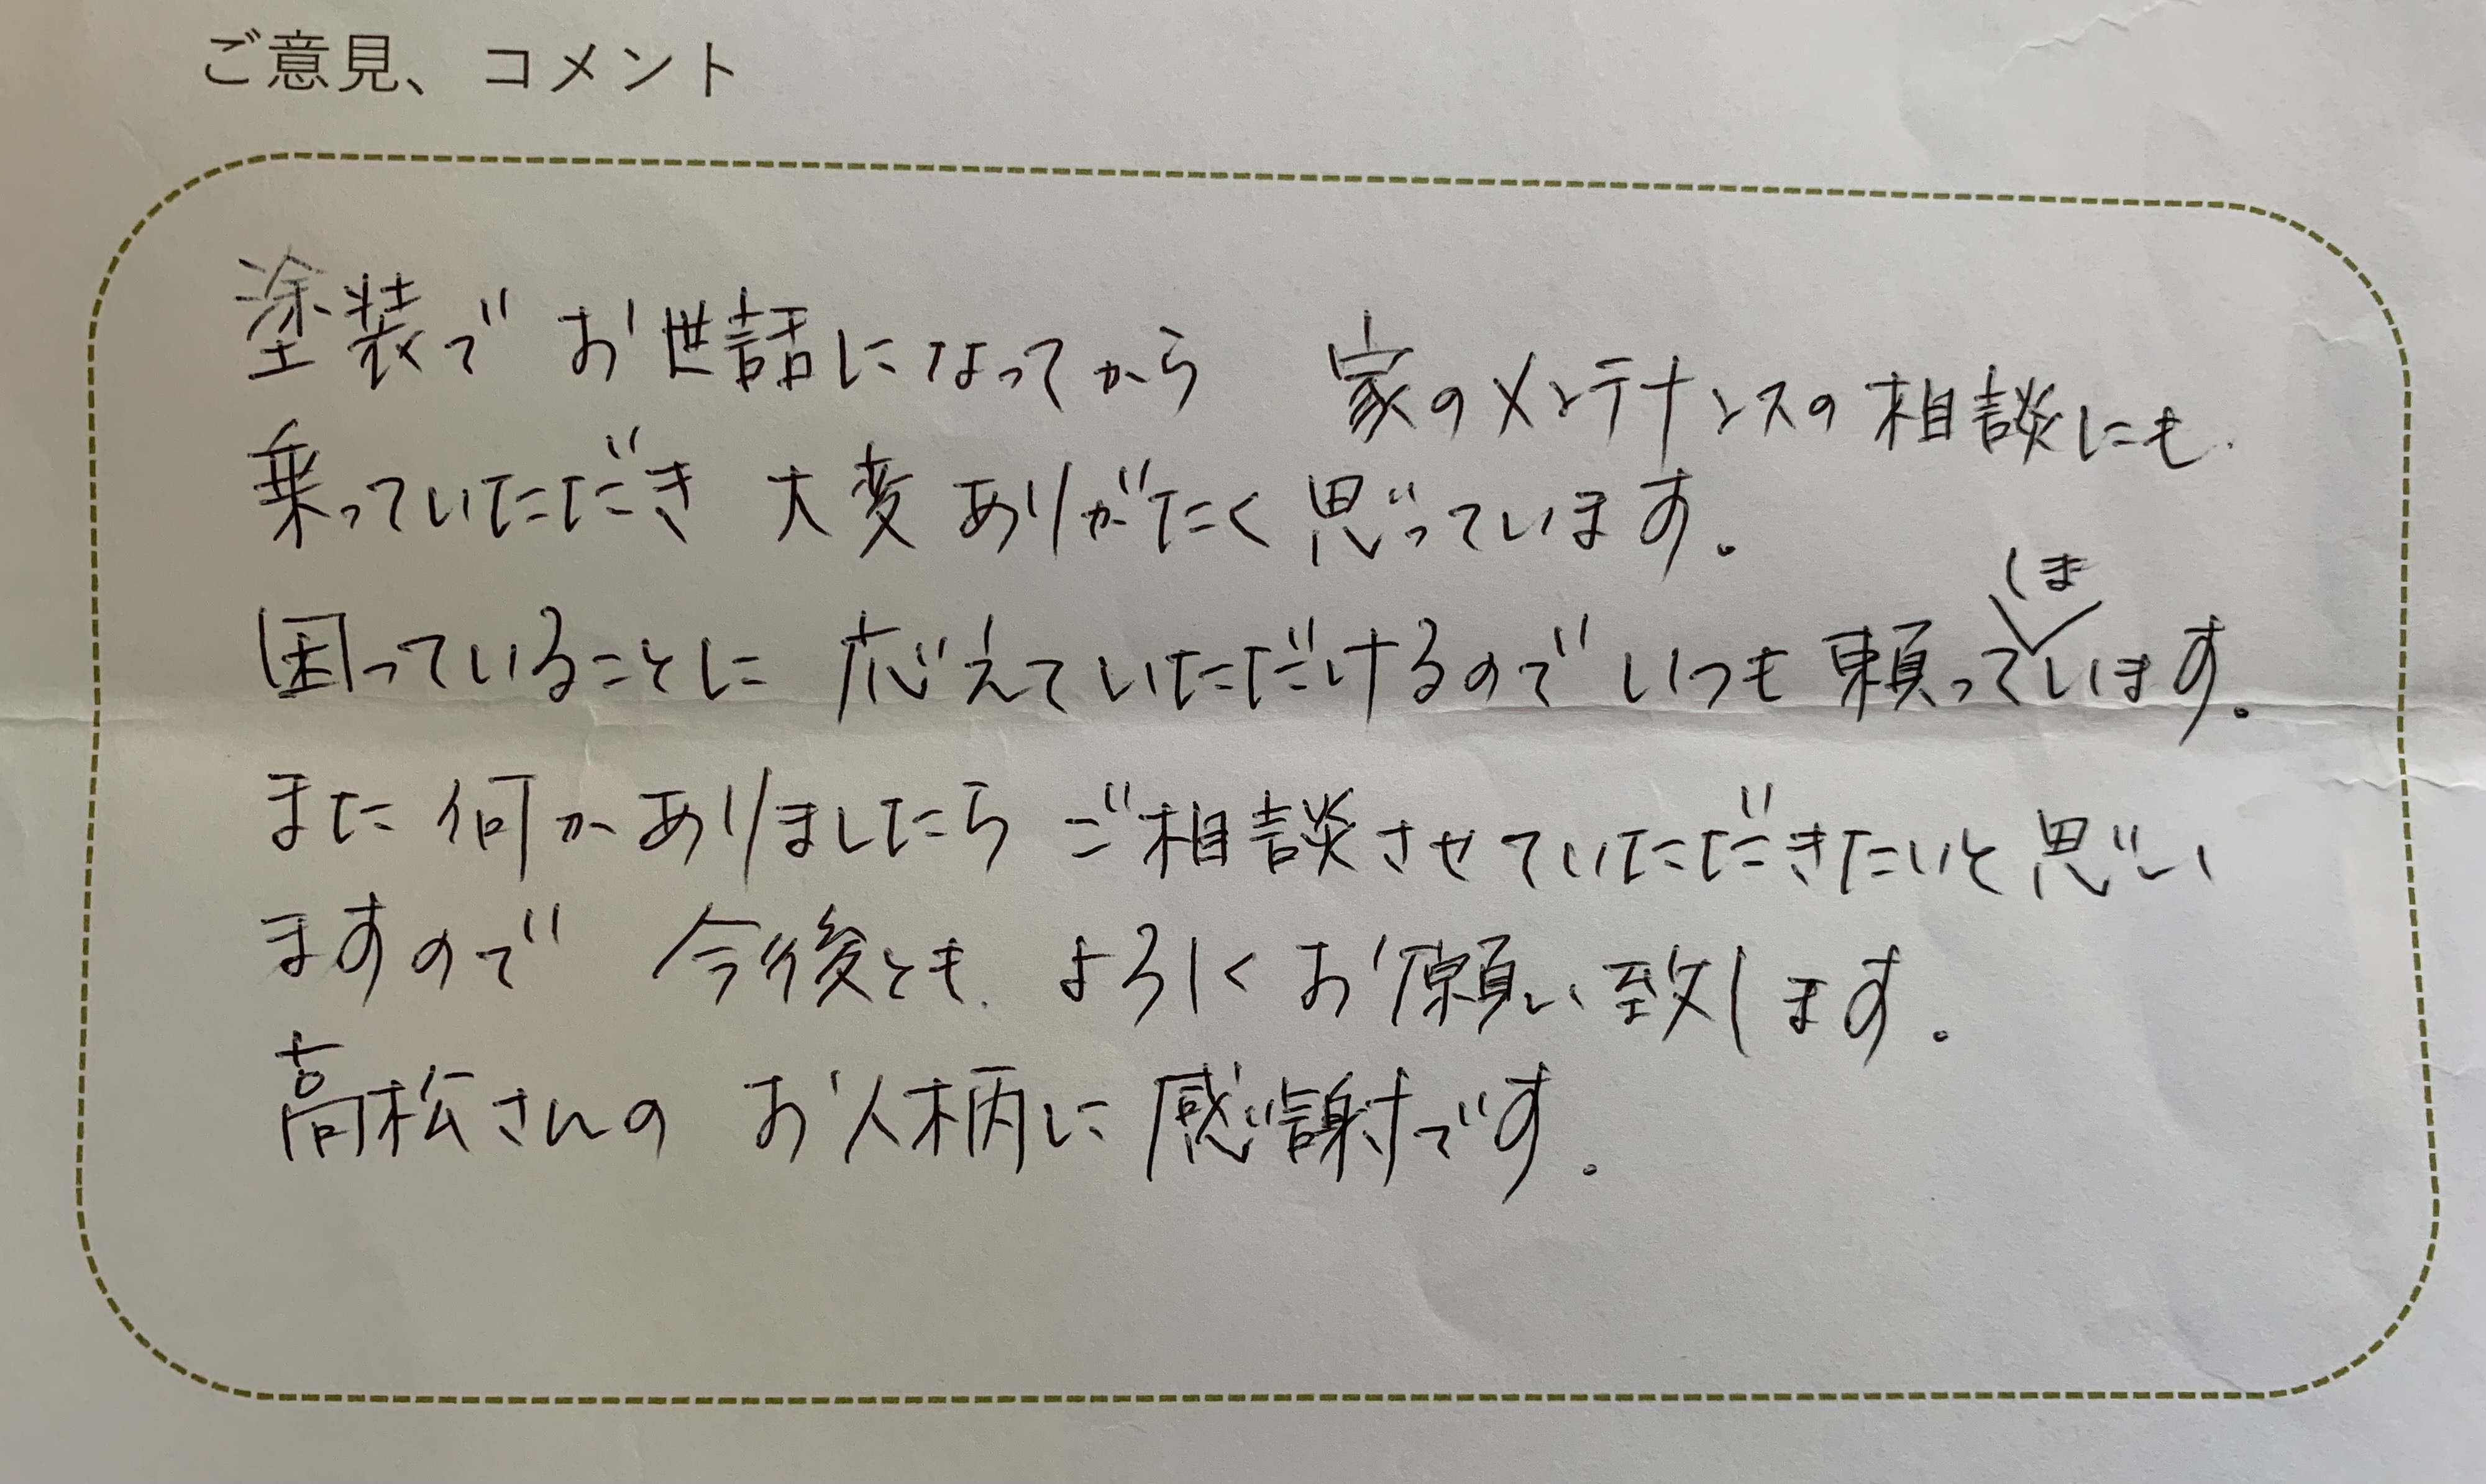 ご意見、コメント
塗装でお世話になってから 家のメンテナンスの相談にも
乗っていただき 大変ありがたく思っています。
困っていることに 応えていただけるのでいつも頼ってしまいます。
また何かありましたら ご相談させていただきたいと思い
ますので 今後とも よろしくお願い致します。
高松さんの お人柄に感謝です。